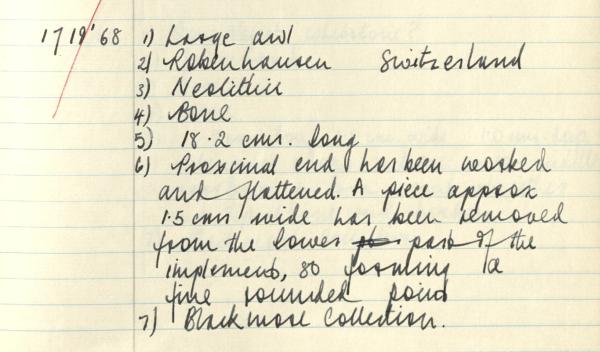 17 19' 68 1) Large awl
2) Robenhausen Switzerland
3) Neolithic
4) Bone
5) 18.2 cms. long
6) Proximal end has been worked
and flattened. A piece approx
1.5 cms wide has been removed
from the lower part of the
implement, so forming a
fine rounded point
7) Blackmore Collection.